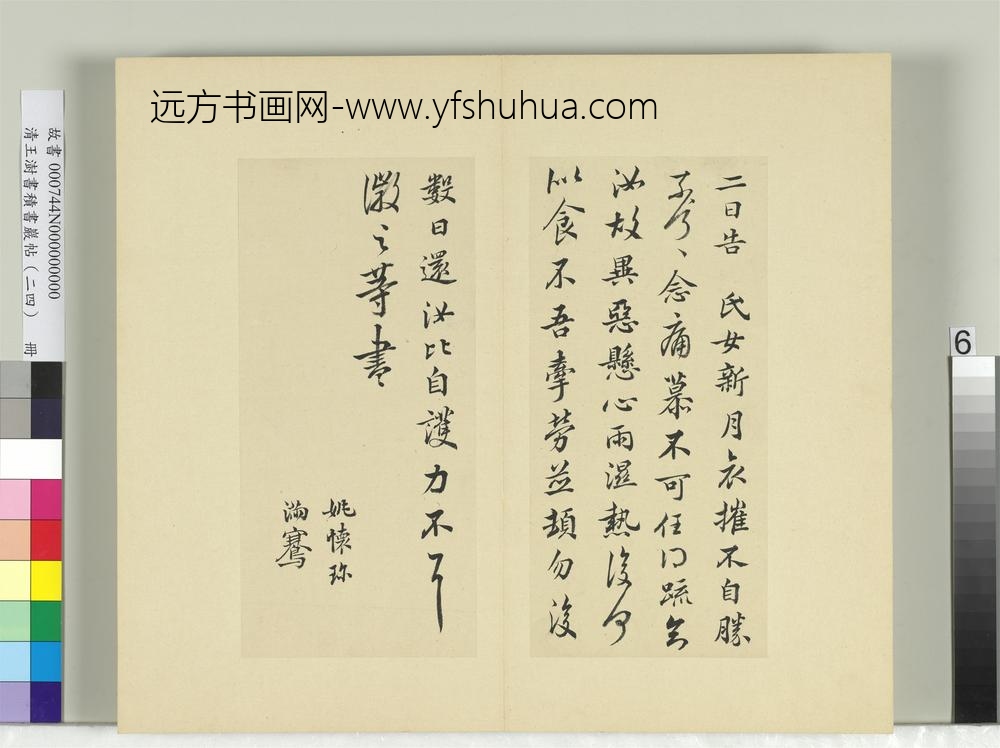 远方书画网-www.yfshuhua.com
故書 000744N000000000
清王澍書積書巖帖（二四） 冊
6
二日告 氏女新月哀摧不自勝
奈何、、念痛慕不可任得疏知
汝故異惡懸心雨濕熱復何
似食不吾牽勞並頓勿復
數日還汝比自護力不具
徽之等書
姚懷珍
滿騫